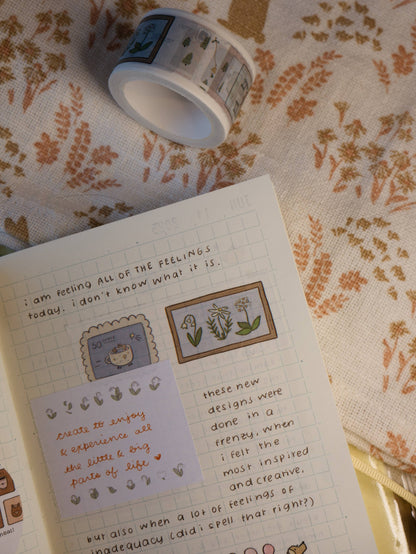 i am feeling ALL OF THE FEELINGS
today. i don't know what it is.
50
create to enjoy
& experience all
the little & big
parts of life
these new
designs were
done in a
frenzy, when
i felt the
most inspired
and creative,
but also when a lot of feelings of
inadequacy (did i spell that right?)